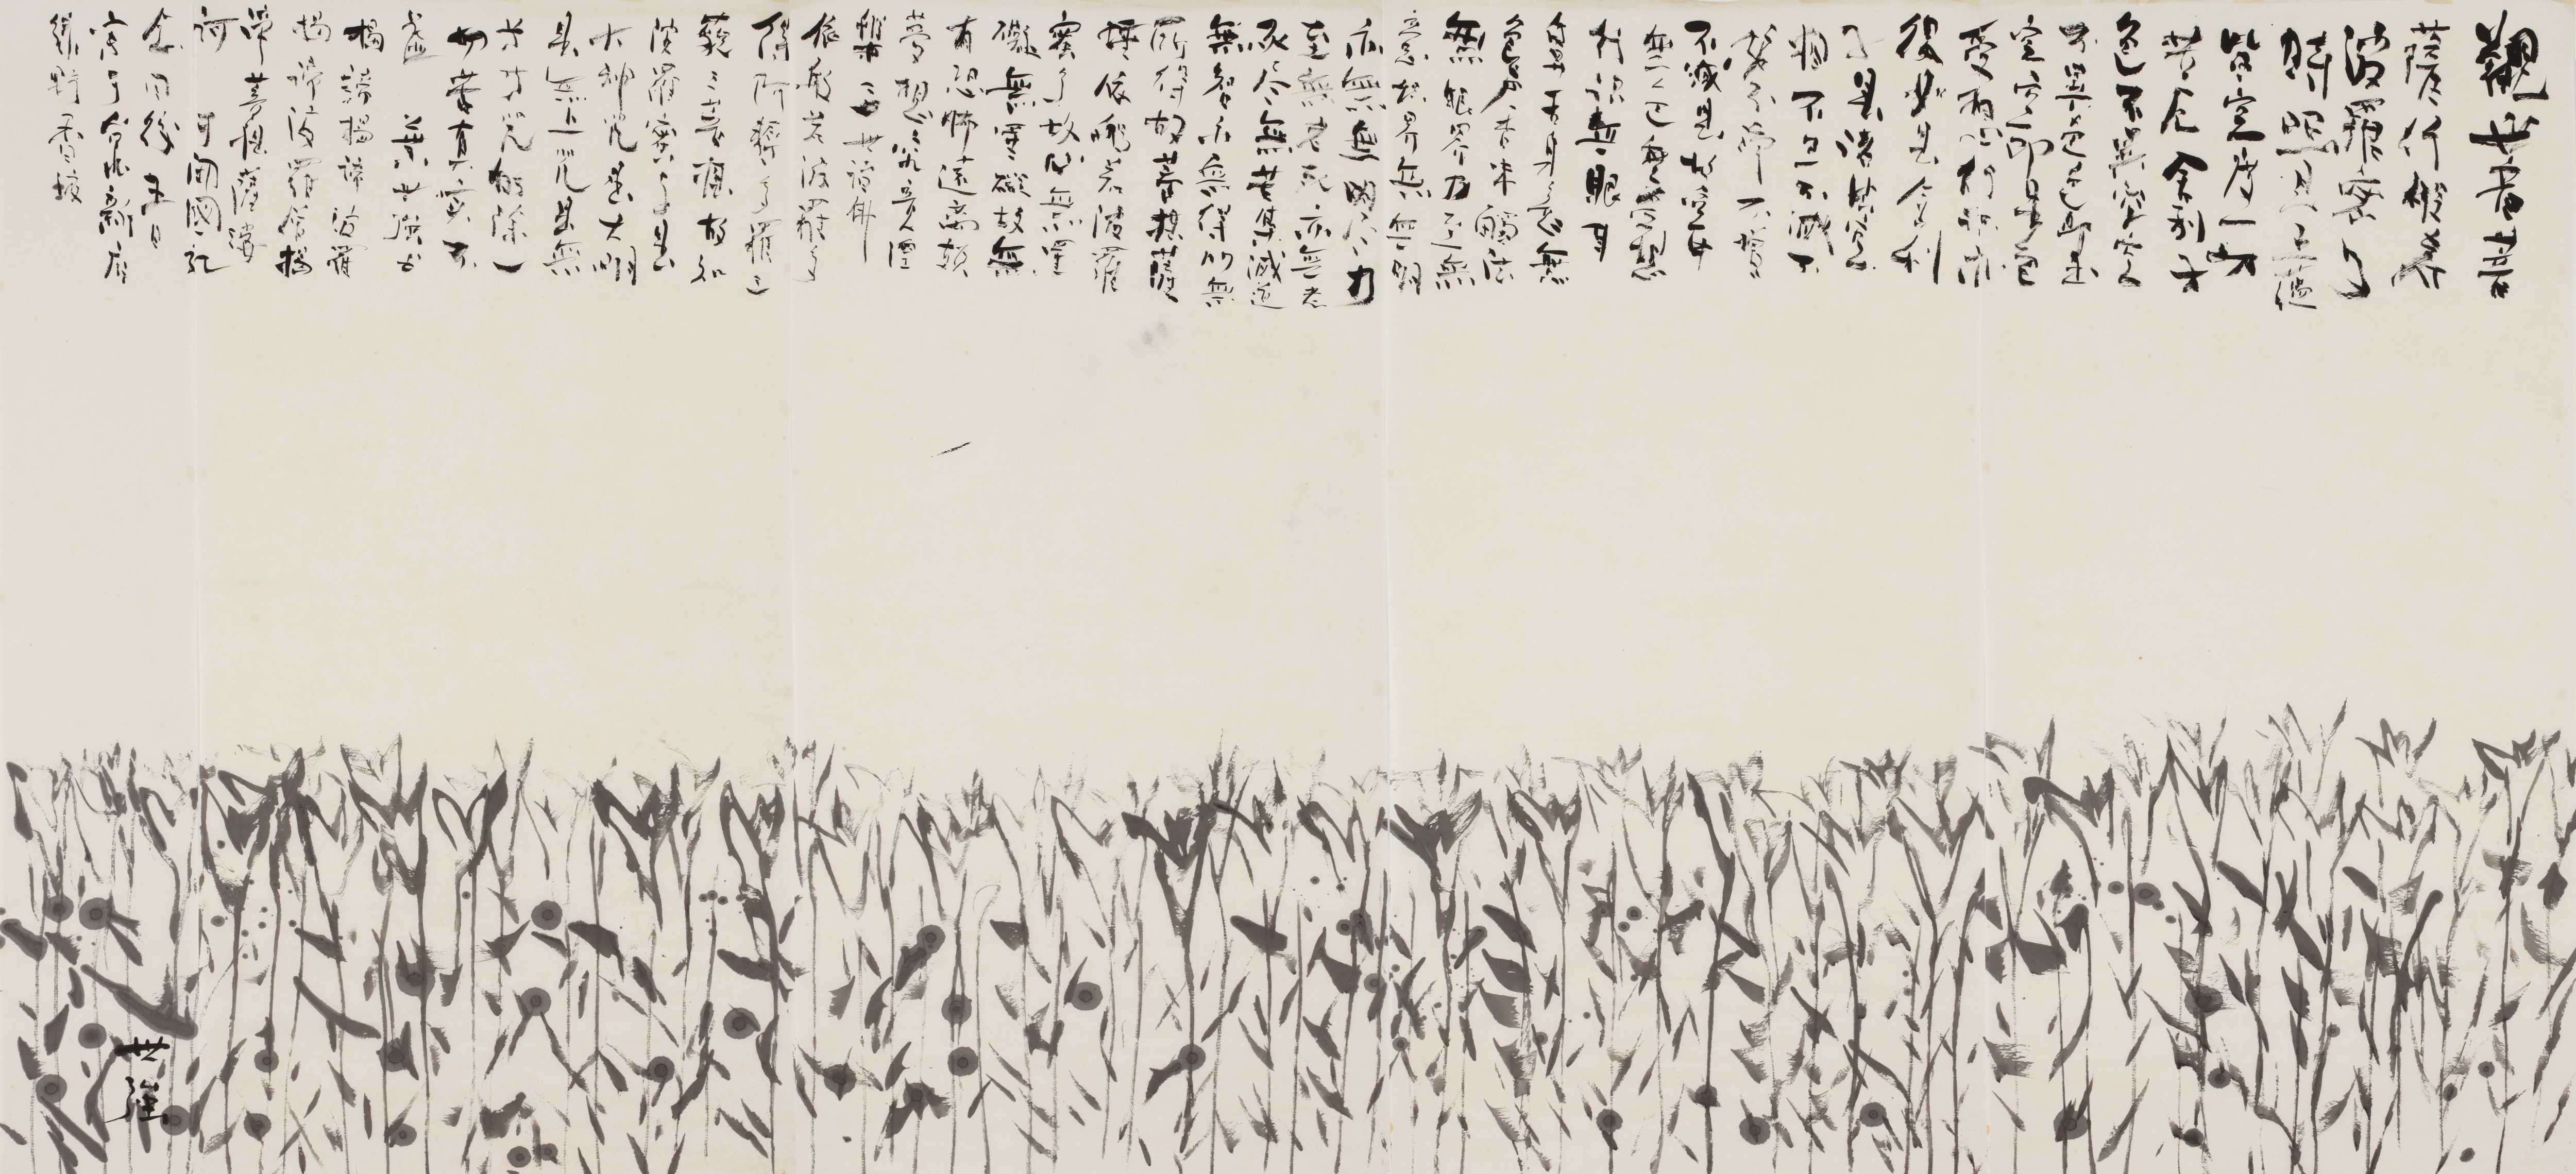 觀世音菩
薩行般若
波羅蜜多
時照見五蘊
皆空度一切
苦厄舍利子
色不異空空
不異色色即是
空空即是色
受想行識亦
復如是舍利
子是諸法空
相不生不滅不
垢不淨不增
不減是故空中
無色無受想
行識無眼耳
鼻舌身意無
色聲香味觸法
無眼界乃至無
意識界無無明
亦無無明盡乃
至無老死亦無老
死盡無苦集滅道
無智亦無得以無
所得故菩提薩
埵依般若波羅
蜜多故心無罣
礙無罣礙故無
有恐怖遠離顛
夢想究竟涅
槃三世諸佛
依般若波羅多
得阿耨多羅三
藐三菩提故知
波羅蜜多是
大神咒是大明
是無上咒是無
等等咒能除一
切苦真實不
虛
揭諦揭諦波羅
揭諦波羅僧揭
諦菩提薩婆
訶